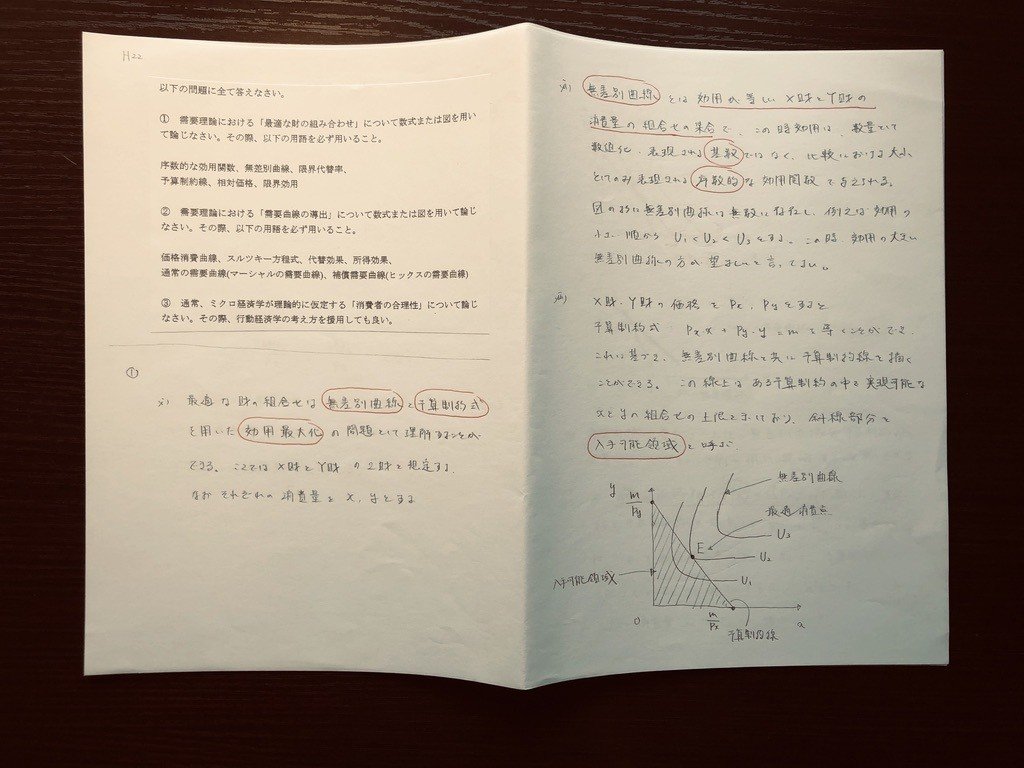 H22
以下の問題に全て答えなさい。
① 需要理論における「最適な財の組み合わせ」について数式または図を用い
て論じなさい。その際、以下の用語を必ず用いること。
序数的な効用関数、無差別曲線、限界代替率、
予算制約線、相対価格、限界効用
② 需要理論における「需要曲線の導出」について数式または図を用いて論じ
なさい。その際、以下の用語を必ず用いること。
価格消費曲線、スルツキー方程式、代替効果、所得効果、
通常の需要曲線(マーシャルの需要曲線)、補償需要曲線(ヒックスの需要曲線)
③ 通常、ミクロ経済学が理論的に仮定する「消費者の合理性」について論じ
なさい。その際、行動経済学の考え方を援用しても良い。
①
i) 最適な財の組合せは無差別曲線と予算制約式
を用いた効用最大化の問題として理解することが
できる。ここではX財とY財の2財を想定する。
なおそれぞれの消費量をx, yとする
ii) 無差別曲線とは効用が等しいX財とY財の
消費量の組合せの集合で、この時効用は、数量として
数値化・表現される基数ではなく、比較における大小
としてのみ表現される序数的な効用関数で与えられる。
図のように無差別曲線は無数に存在し、例えば効用の
小さい順からU1<U2<U3とする。この時、効用の大きい
無差別曲線の方が望ましいと言ってよい。
iii) X財・Y財の価格をPx, Pyとすると
予算制約式 Px・x + Py・y = m を導くことができ、
これに基づき、無差別曲線と共に予算制約線を描く
ことができる。この線上はある予算制約の中で実現可能な
xとyの組合せの上限となっており、斜線部分を
入手可能領域と呼ぶ
無差別曲線
y
m/Py
最適消費点
U3
E
U2
入手可能領域
U1
0
m/Px
x
予算制約線